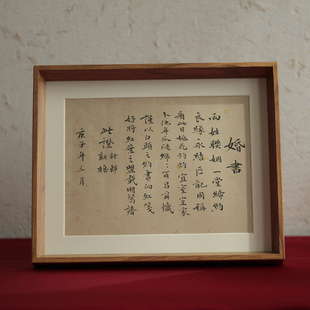 婚書
両姓聯姻一堂締約
良緣永結匹配同稱
看此日桃花灼灼宜室宜家
卜他年瓜瓞綿綿爾昌爾熾
謹以白頭之約書向紅箋
好將紅葉之盟載明鴛譜
此證
新郎
新娘
庚子年三月